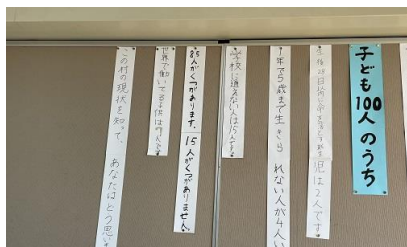 子ども100人のうち
児は2人です
1年で5歳まで生きられない人が4人い
学校に通えない人は15人です。
85人がくつがあります。15人がくつがありません。
世界で働いてる子供は9人です
この村の現状を知って あなたはどう思い